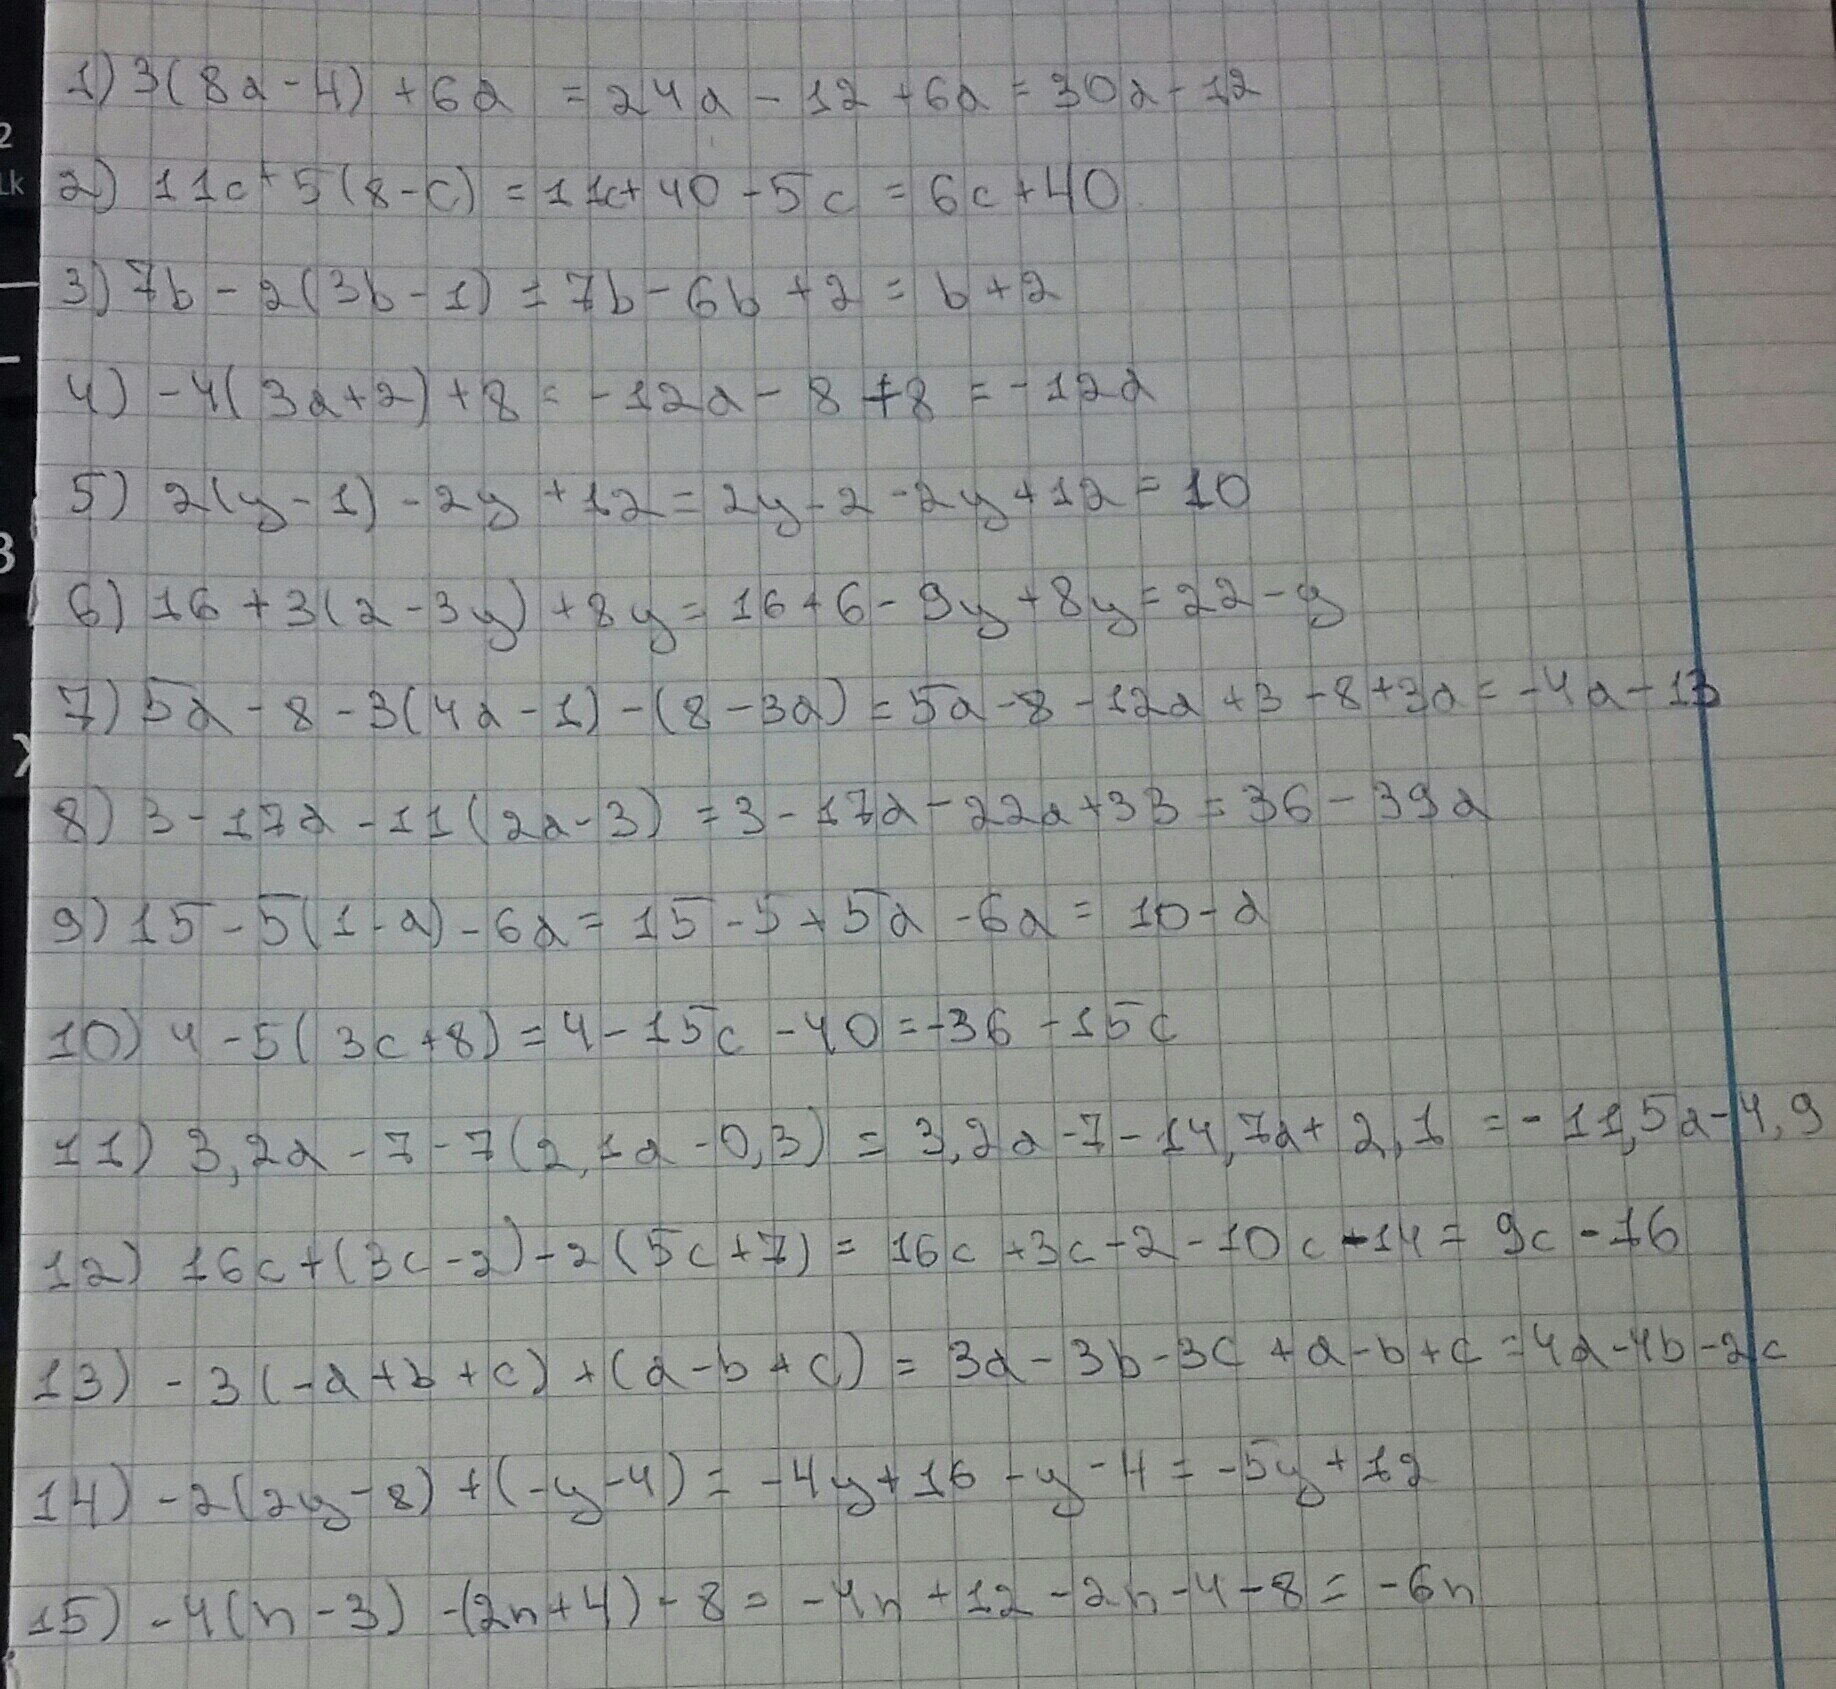 1) 3(8a-4)+6a = 24a-12+6a=30a-12
2) 11c+5(8-c)=11c+40-5c=6c+40
3) 7b-2(3b-1)=7b-6b+2=b+2
4) -4(3a+2)+8=-12a-8+8=-12a
5) 2(y-1)-2y+12=2y-2-2y+12=10
6) 16+3(2-3y)+8y=16+6-9y+8y=22-y
7) 5a-8-3(4a-1)-(8-3a)=5a-8-12a+3-8+3a=-4a-13
8) 3-17a-11(2a-3)=3-17a-22a+33=36-39a
9) 15-5(1-a)-6a=15-5+5a-6a=10-a
10) 4-5(3c+8)=4-15c-40=-36-15c
11) 3,2a-7-7(2,1a-0,3)=3,2a-7-14,7a+2,1=-11,5a-4,9
12) 16c+(3c-2)-2(5c+7)=16c+3c-2-10c-14=9c-16
13) -3(-a+b+c)+(a-b+c)=3a-3b-3c+a-b+c=4a-4b-2c
14) -2(2y-8)+(-y-4)=-4y+16-y-4=-5y+12
15) -4(n-3)-(2n+4)-8=-4n+12-2n-4-8=-6n
2
Lk
3